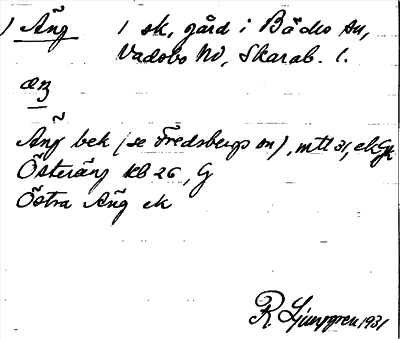 1) Äng 1 sk, gård i Bäcks sn,
Vadsbo hd, Skarab. l.
æŋ
Äng bek (se Fredsbergs sn), mtl 31, ekGk
Österäng Kb 26, G
Östra Äng ek
R. Ljunggren 1931